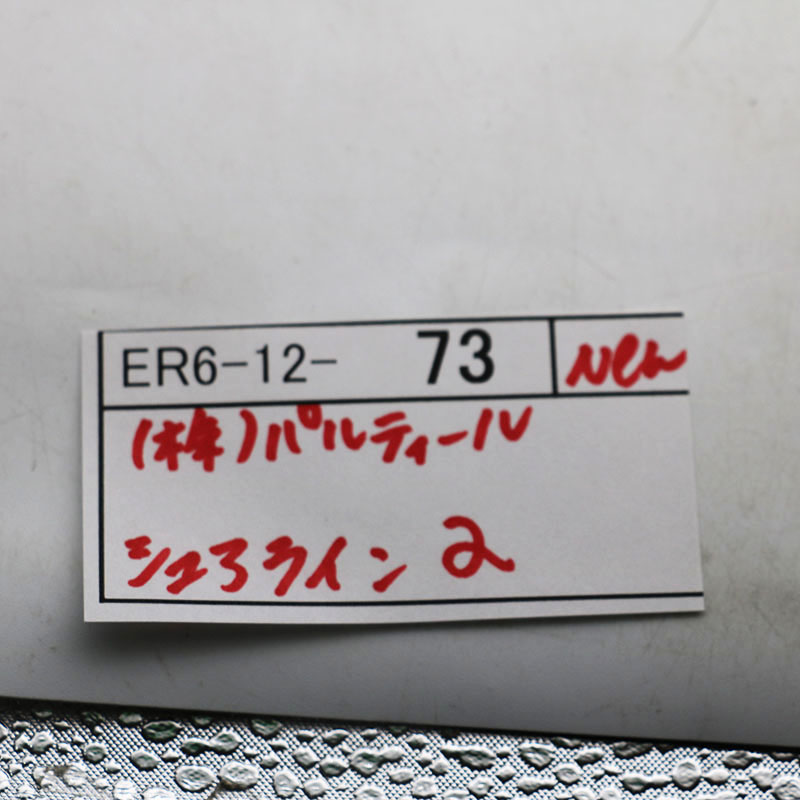 ER6-12- 73 New
(株)パルティール
シュろライン2